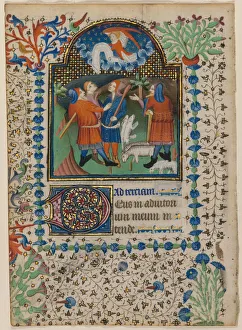 Ad terciam.
Deus in adiutori
um meum in
tende